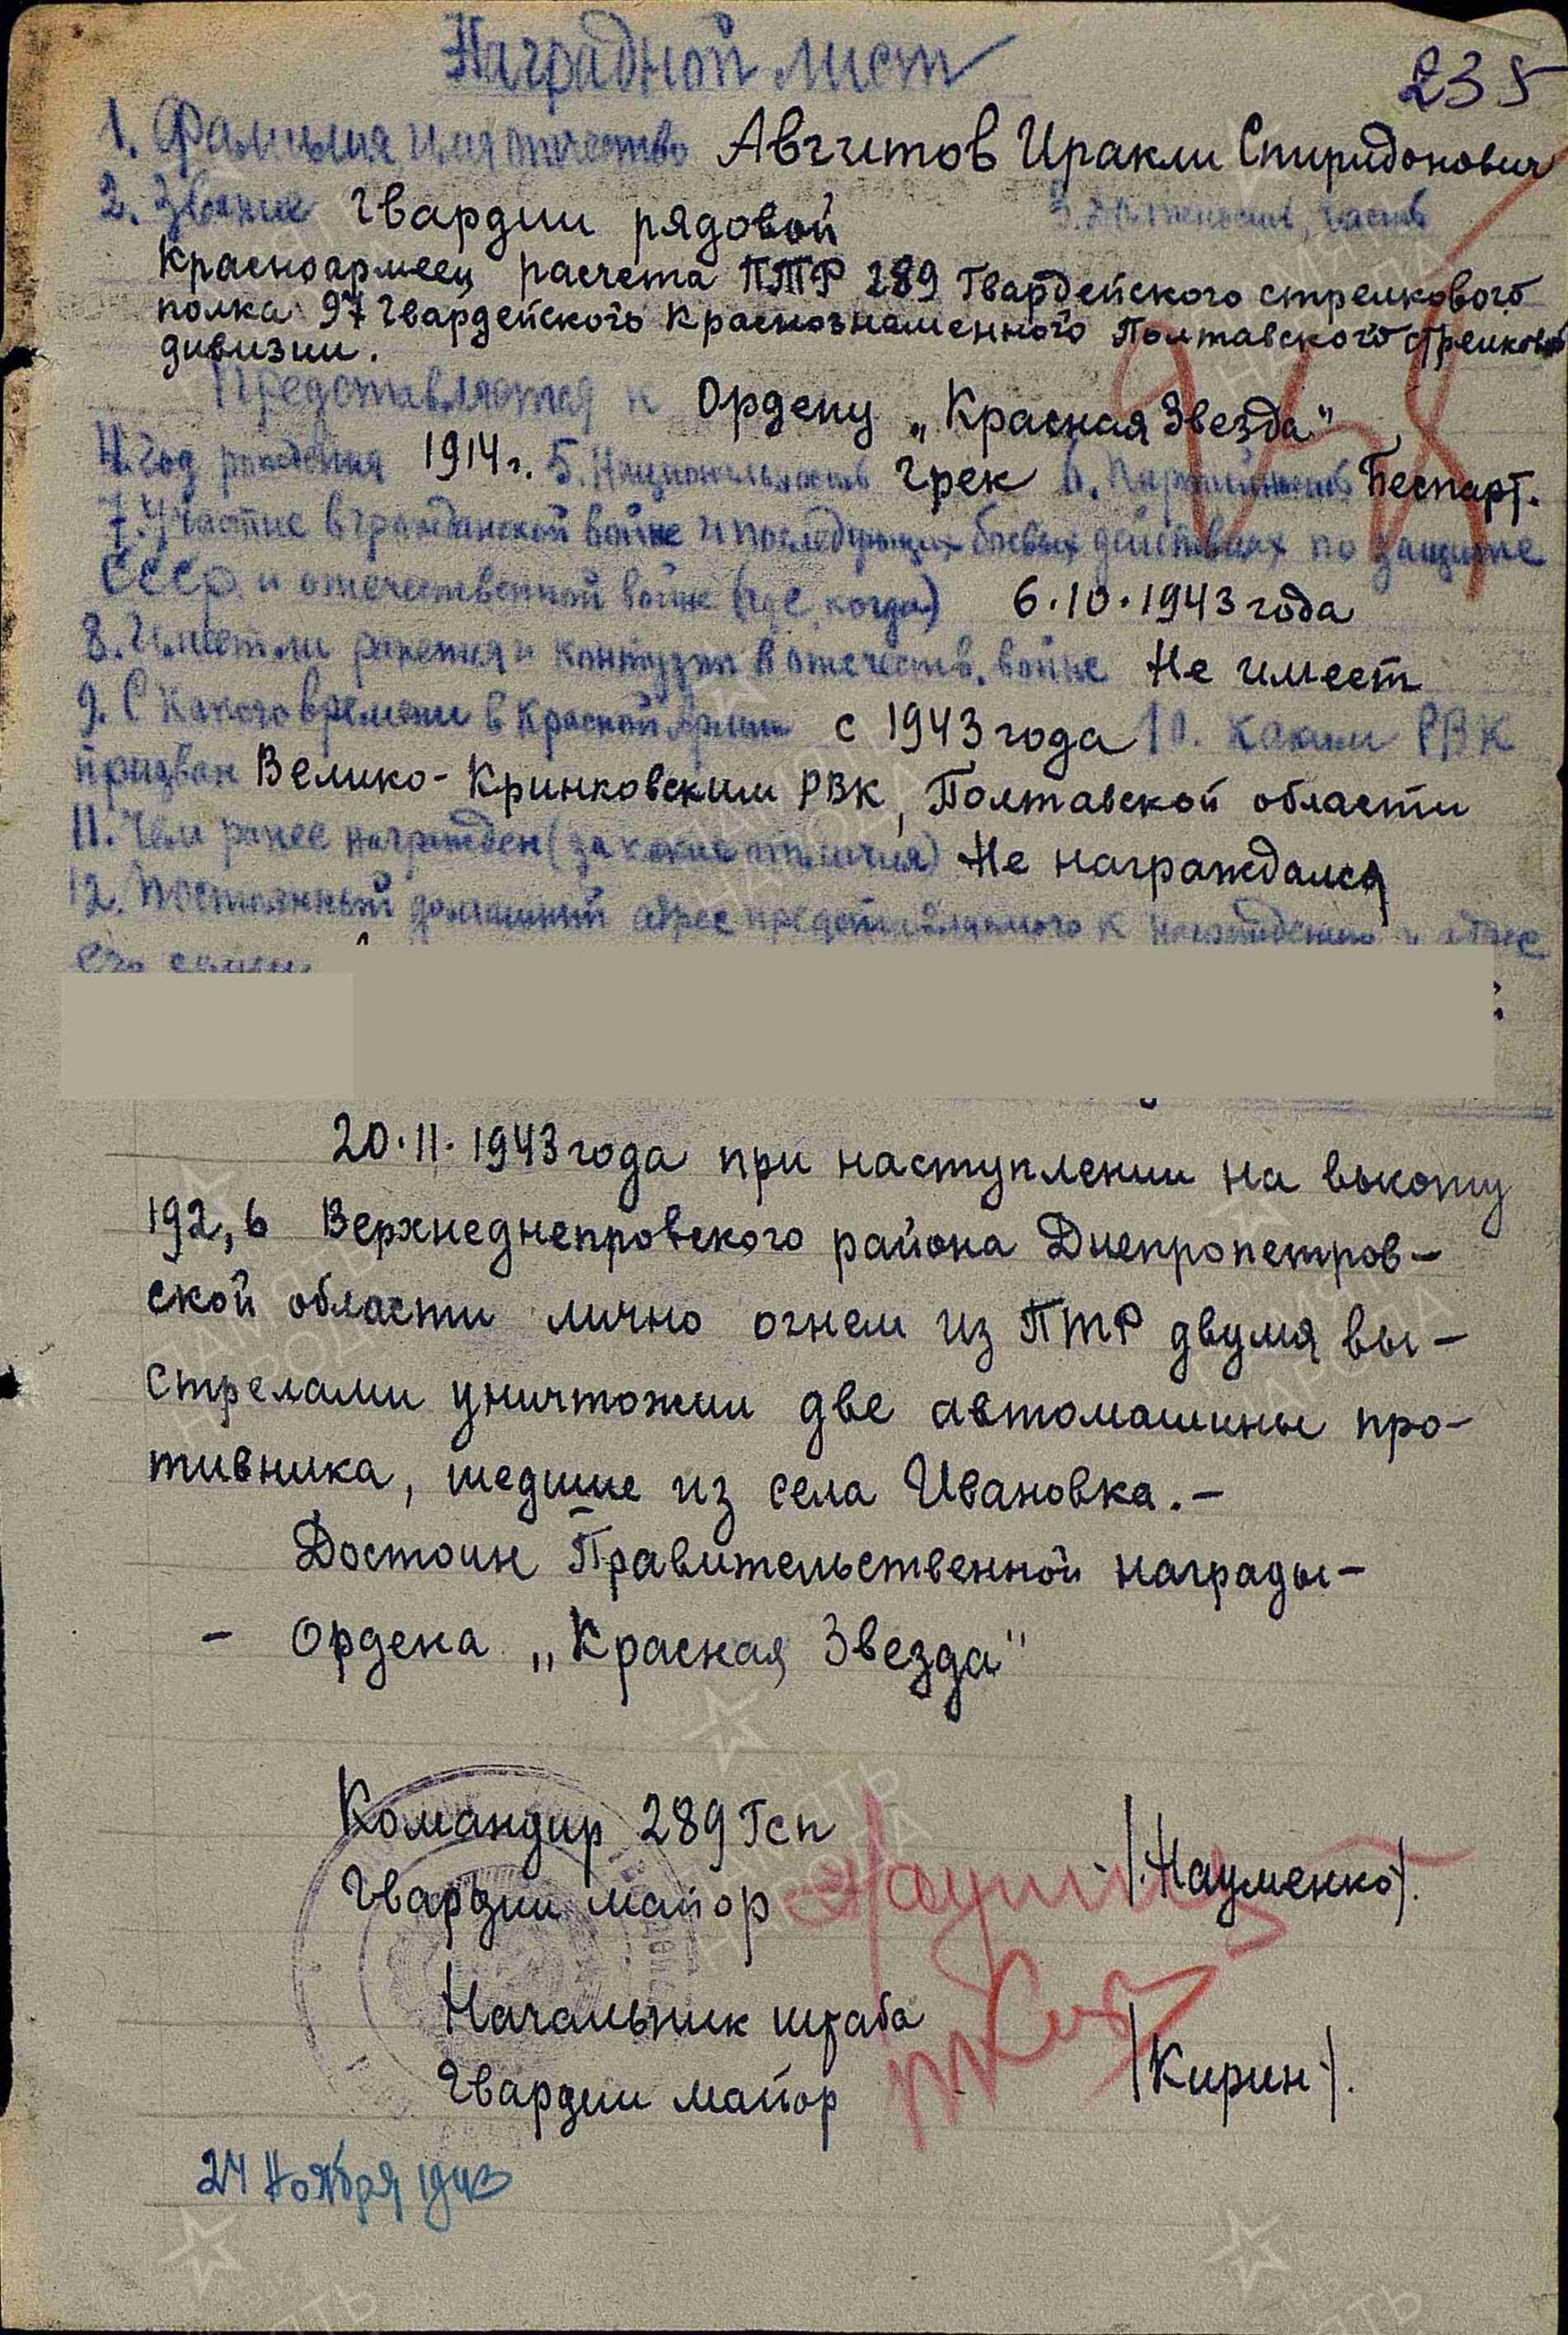 Наградной лист
235
1. Фамилия имя отчество Авгитов Иракли Спиридонович
2. Звание Гвардии рядовой 3. Должность, часть
Красноармеец расчета ПТР 289 Гвардейского стрелкового
полка 97 Гвардейского Краснознаменного Полтавского стрелковой
дивизии.
Представляется к Ордену „Красная Звезда"
4. Год рождения 1914 г. 5. Национальность Грек 6. Партийность Беспарт.
7. Участие в гражданской войне и последующих боевых действиях по защите
СССР и отечественной войне (где, когда) 6.10.1943 года
8. Имеет ли ранения и контузии в отечеств. войне Не имеет
9. С какого времени в Красной Армии с 1943 года 10. Каким РВК
призван Велико-Кринковским РВК, Полтавской области
11. Чем ранее награжден (за какие отличия) Не награждался
12. Постоянный домашний адрес представляемого к награждению и адрес
его семьи
20.11.1943 года при наступлении на высоту
192,6 Верхнеднепровского района Днепропетров-
ской области лично огнем из ПТР двумя вы-
стрелами уничтожил две автомашины про-
тивника, шедшие из села Ивановка.-
Достоин Правительственной награды-
- Ордена „Красная Звезда"
Командир 289 Гсп
Гвардии майор /Науменко/.
Начальник штаба
Гвардии майор /Кирин/.
24 Ноября 1943